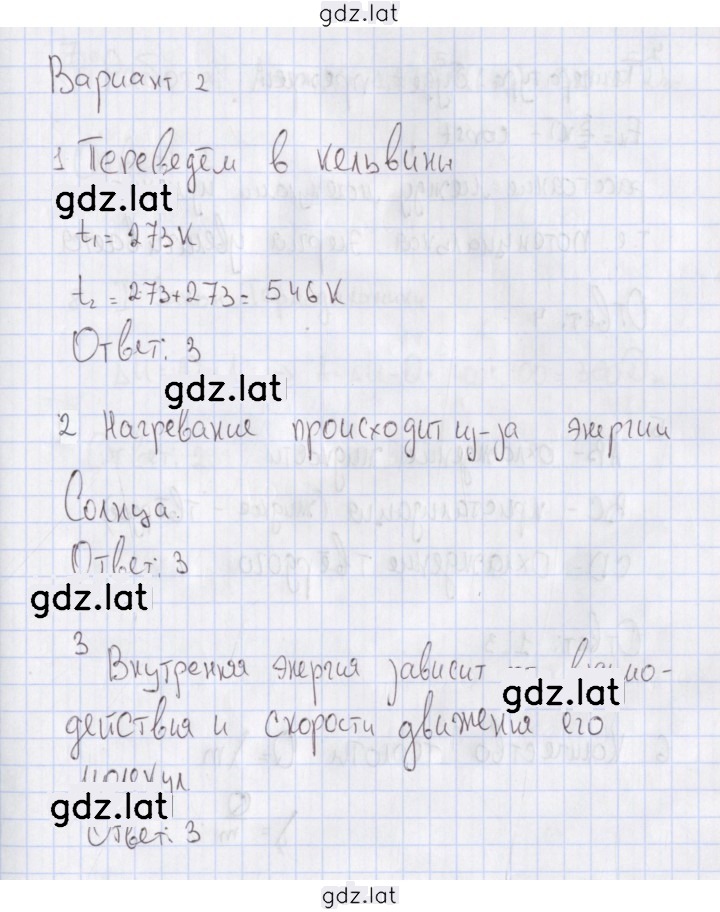 gdz.lat
Вариант 2
1 Переведём в кельвины
gdz.lat
t₁ = 273К
t₂ = 273+273 = 546 К
Ответ: 3
gdz.lat
2 Нагревание происходит из-за энергии
Солнца.
Ответ: 3
gdz.lat
3
Внутренняя энергия зависит
gdz.lat
действия и скорости движения его
gdz.lat
Ответ: 3
gdz.lat